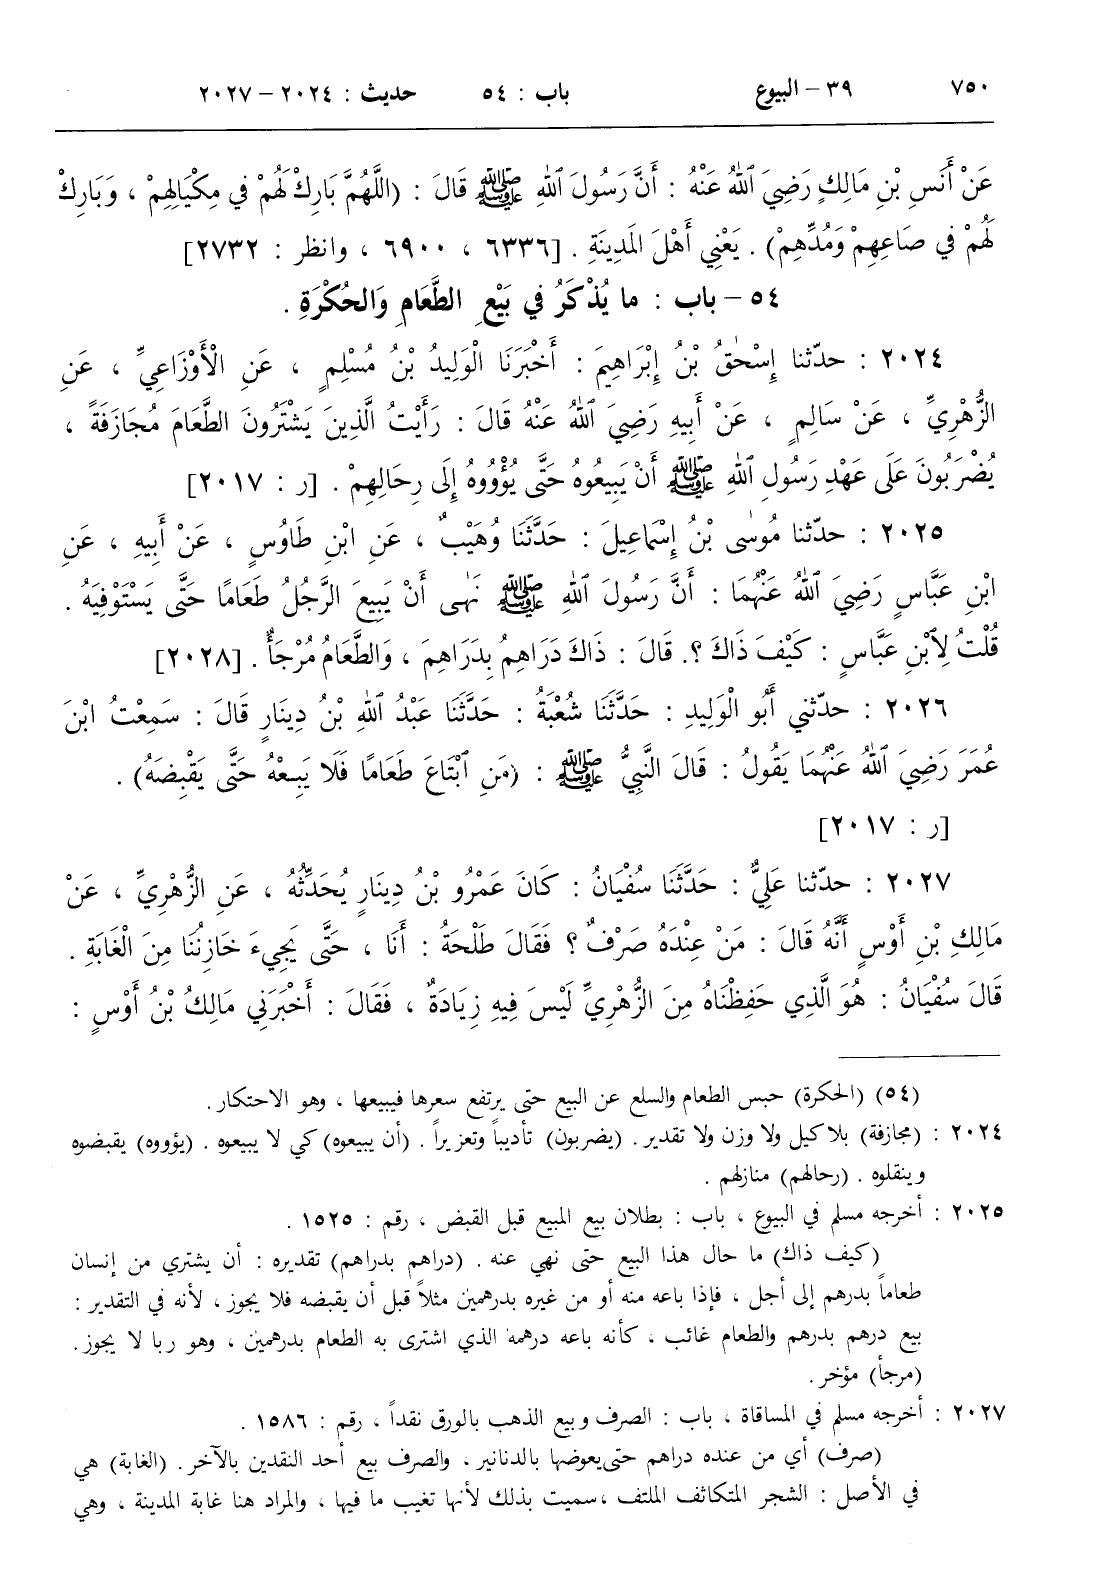 ٧٥٠ ٣٩ – البيوع باب : ٥٤ حديث : ٢٠٢٤ – ٢٠٢٧
عَنْ أَنَسِ بْنِ مَالِكٍ رَضِيَ ٱللهُ عَنْهُ : أَنَّ رَسُولَ ٱللهِ ﷺ قَالَ : (اللَّهُمَّ بَارِكْ لَهُمْ في مِكْيَالِهِمْ ، وَبَارِكْ
لَهُمْ في صَاعِهِمْ وَمُدِّهِمْ) . يَعْنِي أَهْلَ المَدِينَةِ . [٦٣٣٦ ، ٦٩٠٠ ، وانظر : ٢٧٣٢]
٥٤ – باب : ما يُذْكَرُ في بَيْعِ الطَّعَامِ وَالحُكْرَةِ .
٢٠٢٤ : حدّثنا إِسْحٰقُ بْنُ إِبْرَاهِيمَ : أَخْبَرَنَا الْوَلِيدُ بْنُ مُسْلِمٍ ، عَنِ الْأَوْزَاعِيِّ ، عَنِ
الزُّهْرِيِّ ، عَنْ سَالِمٍ ، عَنْ أَبِيهِ رَضِيَ ٱللهُ عَنْهُ قَالَ : رَأَيْتُ الَّذِينَ يَشْتَرُونَ الطَّعَامَ مُجَازَفَةً ،
يُضْرَبُونَ عَلَى عَهْدِ رَسُولِ ٱللهِ ﷺ أَنْ يَبِيعُوهُ حَتَّى يُؤْوُوهُ إِلَى رِحَالِهِمْ . [ر : ٢٠١٧]
٢٠٢٥ : حدّثنا مُوسٰى بْنُ إِسْمَاعِيلَ : حَدَّثَنَا وُهَيْبٌ ، عَنِ ابْنِ طَاوُسٍ ، عَنْ أَبِيهِ ، عَنِ
ابْنِ عَبَّاسٍ رَضِيَ ٱللهُ عَنْهُمَا : أَنَّ رَسُولَ ٱللهِ ﷺ نَهٰى أَنْ يَبِيعَ الرَّجُلُ طَعَامًا حَتَّى يَسْتَوْفِيَهُ .
قُلْتُ لِٱبْنِ عَبَّاسٍ : كَيْفَ ذَاكَ ؟. قَالَ : ذَاكَ دَرَاهِمُ بِدَرَاهِمَ ، وَالطَّعَامُ مُرْجَأٌ . [٢٠٢٨]
٢٠٢٦ : حدّثني أَبُو الْوَلِيدِ : حَدَّثَنَا شُعْبَةُ : حَدَّثَنَا عَبْدُ ٱللهِ بْنُ دِينَارٍ قَالَ : سَمِعْتُ ابْنَ
عُمَرَ رَضِيَ ٱللهُ عَنْهُمَا يَقُولُ : قَالَ النَّبِيُّ ﷺ : (مَنِ ٱبْتَاعَ طَعَامًا فَلَا يَبِعْهُ حَتَّى يَقْبِضَهُ) .
[ر : ٢٠١٧]
٢٠٢٧ : حدّثنا عَلِيٌّ : حَدَّثَنَا سُفْيَانُ : كَانَ عَمْرُو بْنُ دِينَارٍ يُحَدِّثُهُ ، عَنِ الزُّهْرِيِّ ، عَنْ
مَالِكِ بْنِ أَوْسٍ أَنَّهُ قَالَ : مَنْ عِنْدَهُ صَرْفٌ ؟ فَقَالَ طَلْحَةُ : أَنَا ، حَتَّى يَجِيءَ خَازِنُنَا مِنَ الْغَابَةِ .
قَالَ سُفْيَانُ : هُوَ الَّذِي حَفِظْنَاهُ مِنَ الزُّهْرِيِّ لَيْسَ فِيهِ زِيَادَةٌ ، فَقَالَ : أَخْبَرَنِي مَالِكُ بْنُ أَوْسٍ :
(٥٤) (الحكرة) حبس الطعام والسلع عن البيع حتى يرتفع سعرها فيبيعها ، وهو الاحتكار .
٢٠٢٤ : (مجازفة) بلا كيل ولا وزن ولا تقدير . (يضربون) تأديباً وتعزيراً . (أن يبيعوه) كي لا يبيعوه . (يؤووه) يقبضوه
وينقلوه . (رحالهم) منازلهم .
٢٠٢٥ : أخرجه مسلم في البيوع ، باب : بطلان بيع المبيع قبل القبض ، رقم : ١٥٢٥ .
(كيف ذاك) ما حال هذا البيع حتى نهي عنه . (دراهم بدراهم) تقديره : أن يشتري من إنسان
طعاماً بدرهم إلى أجل ، فإذا باعه منه أو من غيره بدرهمين مثلاً قبل أن يقبضه فلا يجوز ، لأنه في التقدير :
بيع درهم بدرهم والطعام غائب ، كأنه باعه درهمه الذي اشترى به الطعام بدرهمين ، وهو ربا لا يجوز .
(مرجأ) مؤخر .
٢٠٢٧ : أخرجه مسلم في المساقاة ، باب : الصرف وبيع الذهب بالورق نقداً ، رقم : ١٥٨٦ .
(صرف) أي من عنده دراهم حتى يعوضها بالدنانير ، والصرف بيع أحد النقدين بالآخر . (الغابة) هي
في الأصل : الشجر المتكاثف الملتف ،سميت بذلك لأنها تغيب ما فيها ، والمراد هنا غابة المدينة ، وهي